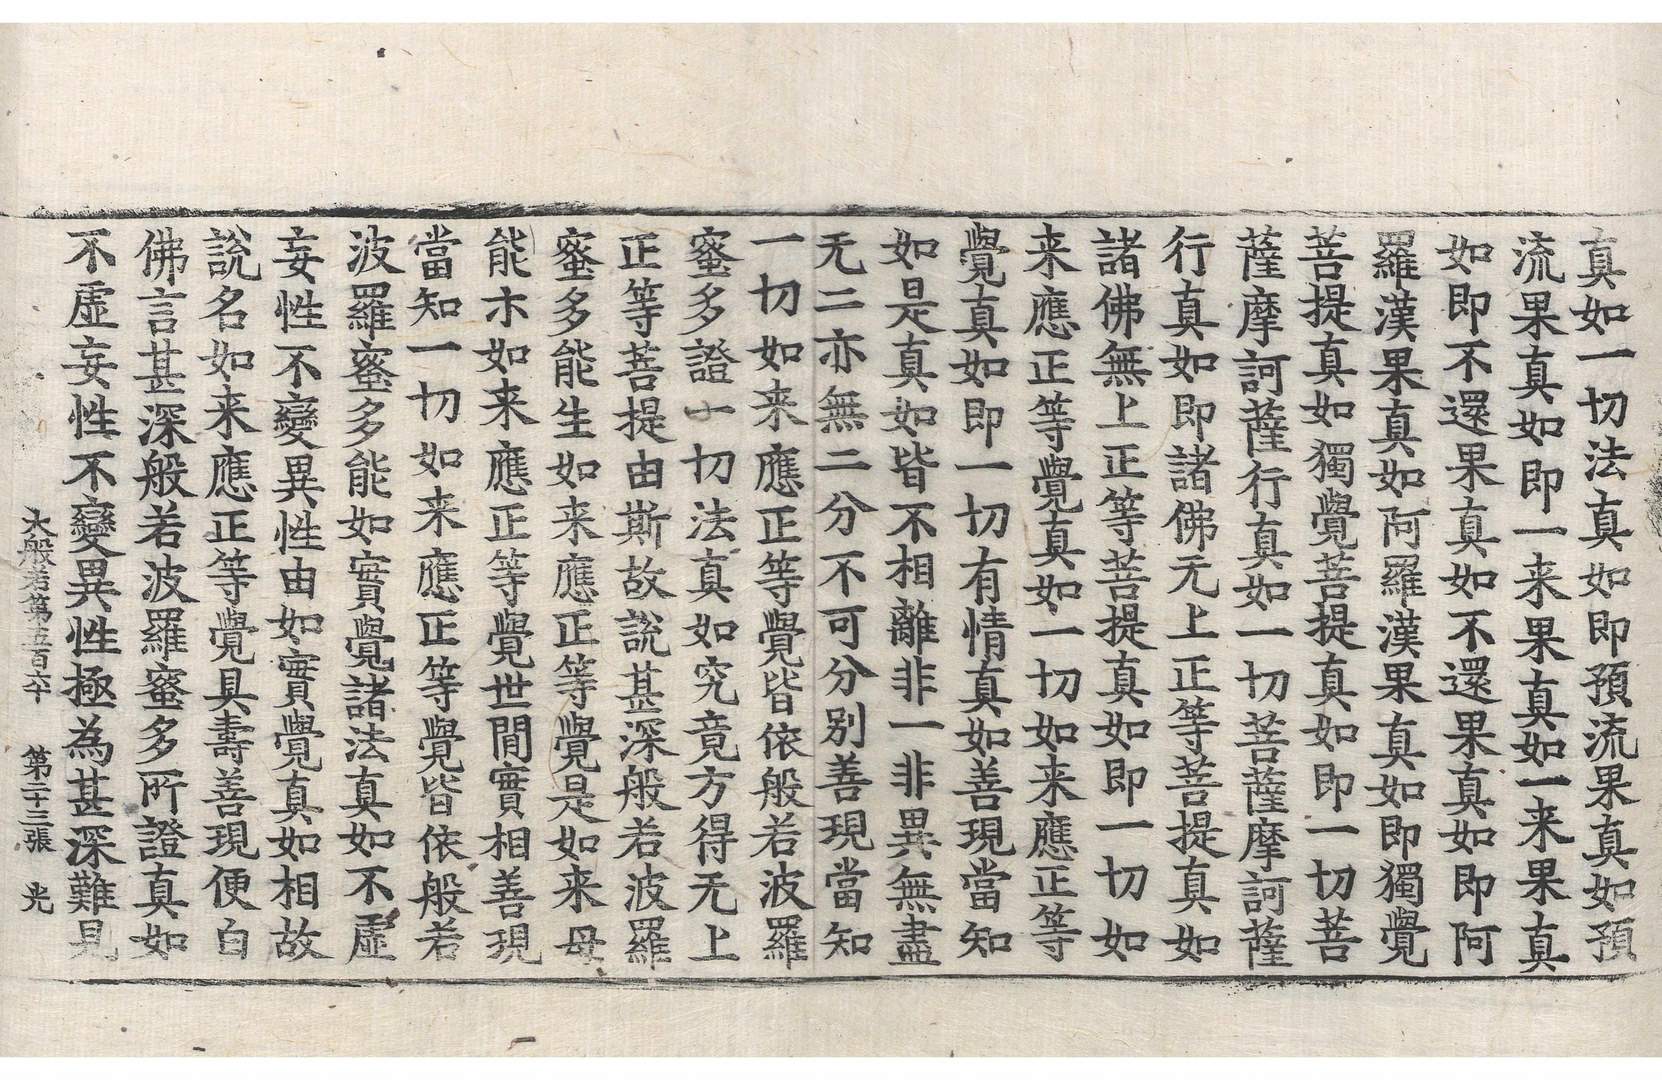 真如一切法真如即預流果真如預
流果真如即一来果真如一来果真
如即不還果真如不還果真如即阿
羅漢果真如阿羅漢果真如即獨覺
菩提真如獨覺菩提真如即一切菩
薩摩訶薩行真如一切菩薩摩訶薩
行真如即諸佛无上正等菩提真如
諸佛無上正等菩提真如即一切如
来應正等覺真如一切如来應正等
覺真如即一切有情真如善現當知
如是真如皆不相離非一非異無盡
无二亦無二分不可分别善現當知
一切如来應正等覺皆依般若波羅
蜜多證一切法真如究竟方得无上
正等菩提由斯故說甚深般若波羅
蜜多能生如来應正等覺是如来母
能示如来應正等覺世間實相善現
當知一切如来應正等覺皆依般若
波羅蜜多能如實覺諸法真如不虛
妄性不變異性由如實覺真如相故
說名如来應正等覺具壽善現便白
佛言甚深般若波羅蜜多所證真如
不虛妄性不變異性極為甚深難見
大般若第五百六十 第二十三張 光